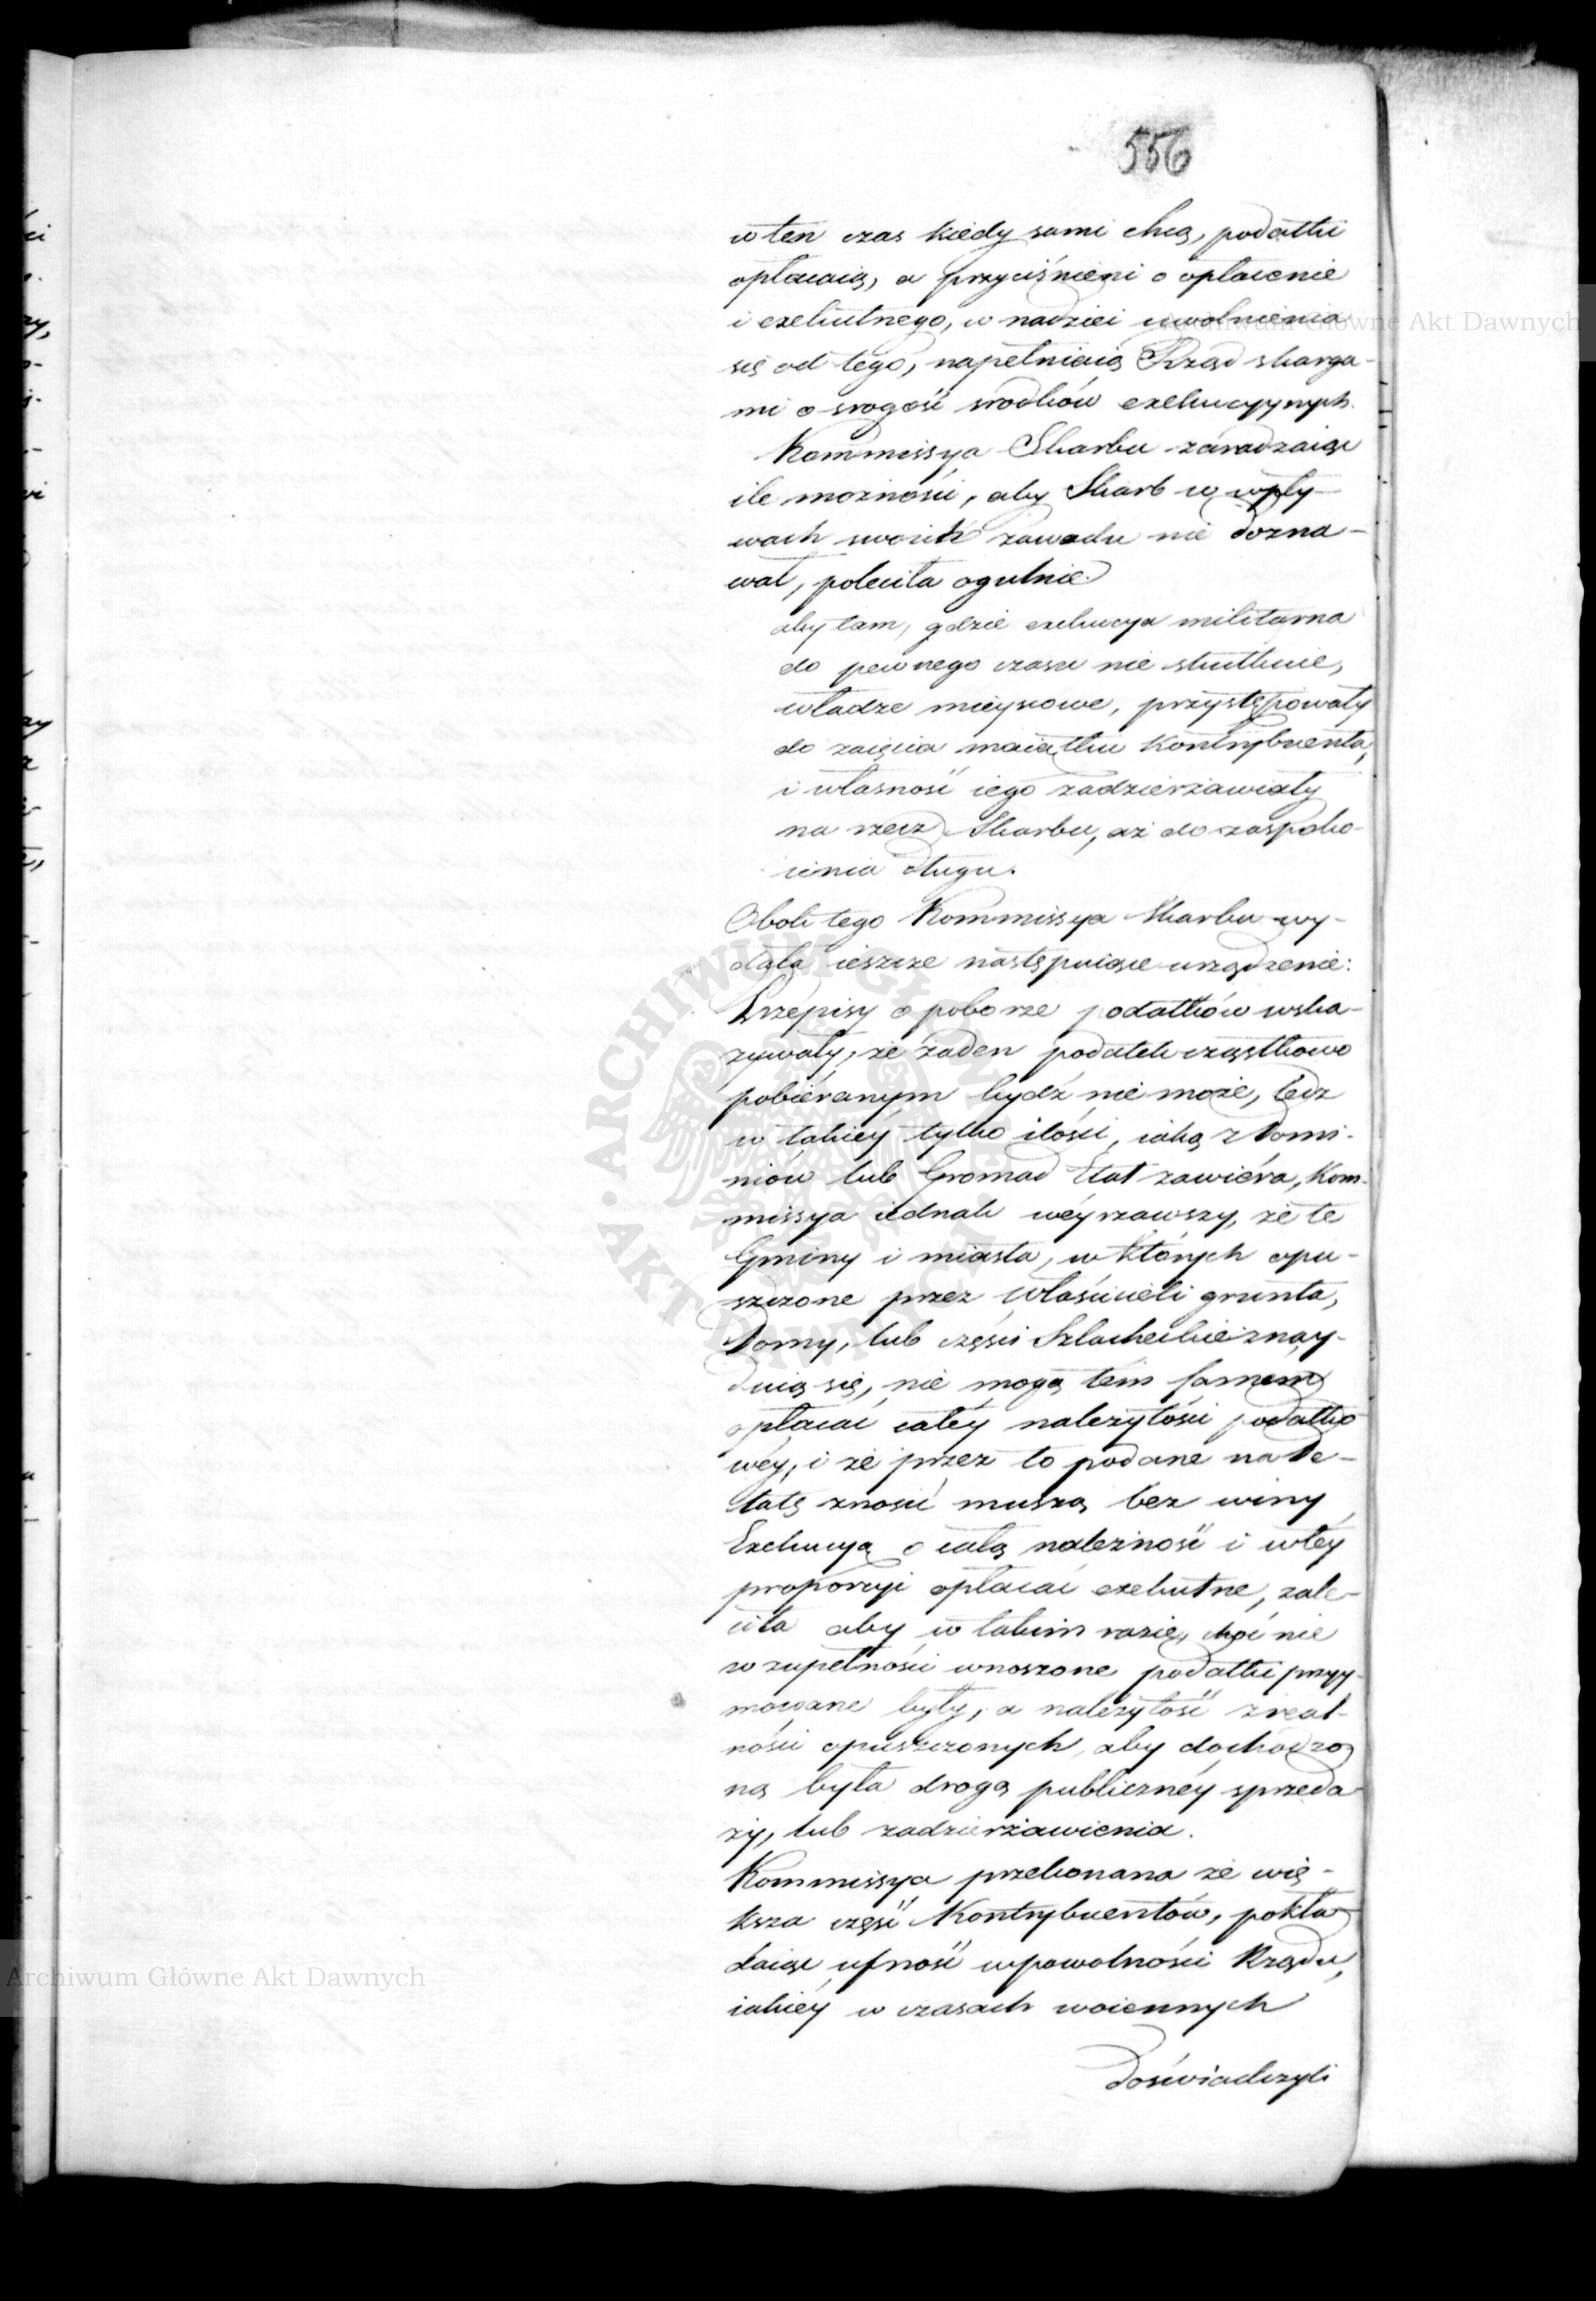 556
w ten czas kiedy sami chcą, podatki
opłacaią, a przyciśnieni o opłacenie
i exekutnego, w nadziei uwolnienia
się od tego, napełniaią Rząd skarga-
mi o srogość srodków exekucyynych.
Kommissya Skarbu zaradzaiąc
ile możności, aby Skarb w wpły-
wach swoich zawodu nie dozna-
wał, poleciła ogulnie
aby tam, gdzie exekucya militarna
do pewnego czasu nie skutkuie,
władze mieyscowe, przystępowały
do zaięcia maiątku Kontrybuenta,
i własność iego zadzierżawiały
na rzecz Skarbu, aż do zaspoko-
ienia długu.
Obok tego Kommissya Skarbu wy-
dała ieszcze następuiące urządzenie:
Przepisy o poborze podatków wska-
zywały, że żaden podatek cząstkowo
pobieranym bydź nie może, lecz
w takiéy tylko ilości, iaką z Domi-
niów lub Gromad Etat zawiéra, Kom-
missya iednak weyrzawszy, że te
Gminy i miasta, w których opu-
szczone przez Właścicieli grunta,
Domy, lub części Szlacheckie znay-
duią się, nie mogą tém samém
opłacać całéy należytości podatko
wéy, i że przez to podane na De-
katę znosić muszą bez winy
Exekucyą o całą należność i w téy
proporcyi opłacać exekutne, zale-
ciła aby w takim razie, choć nie
w zupełności wnoszone podatki przyy-
mowane były, a należytość z real-
ności opuszczonych, aby dochodzo
ną była drogą publicznéy sprzeda
ży, lub zadzierżawienia.
Kommissya przekonana że wię-
ksza część Kontrybuentów, pokła
daiąc ufność w powolności Rządu,
iakiéy w czasach woiennych
doświadczyli
Archiwum Główne Akt Dawnych
Archiwum Główne Akt Dawnych
· ARCHIWUM GŁÓWNE · AKT DAWNYCH